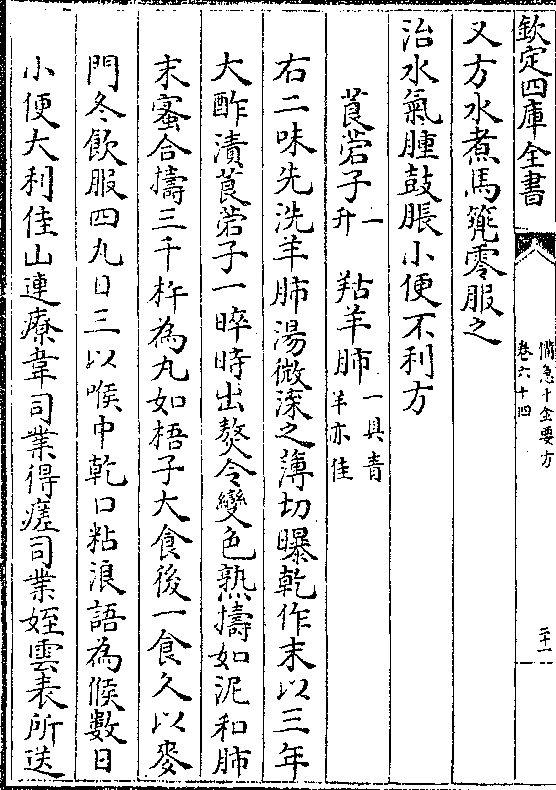 欽定四庫全書
備急千金要方
卷六十四
三十一
又方水煮馬篼零服之
治水氣腫鼓脹小便不利方
莨菪子一升　羖羊肺一具青羊亦佳
右二味先洗羊肺湯微渫之薄切曝乾作末以三年
大酢漬莨菪子一晬時出熬令變色熟擣如泥和肺
末蜜合擣三千杵為丸如梧子大食後一食久以麥
門冬飲服四丸日三以喉中乾口粘浪語為候數日
小便大利佳山連療韋司業得瘥司業姪雲表所送